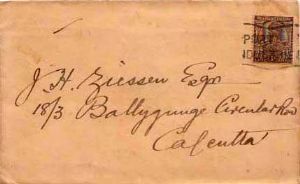 J. H. Ziessen Esqr
18/3 Ballygunge Circular Row
Calcutta